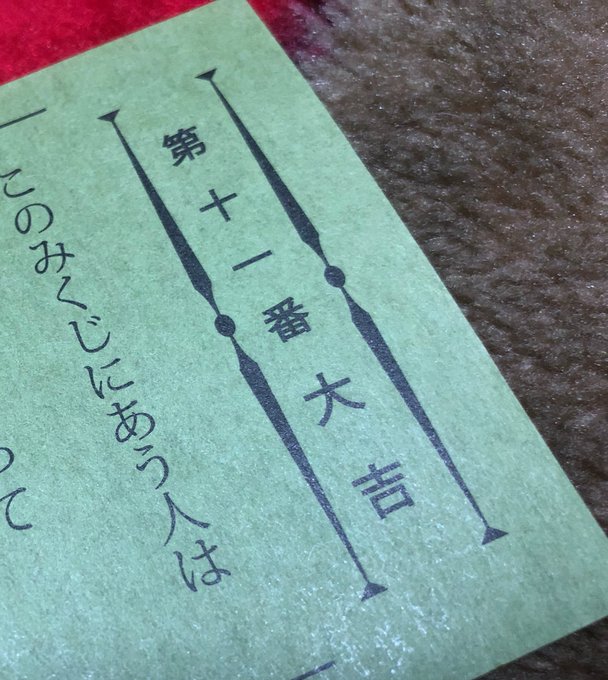 第十一番大吉
このみくじにあう人は
て